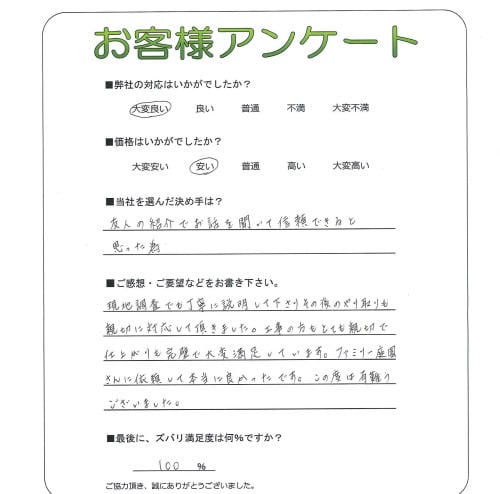 お客様アンケート
■弊社の対応はいかがでしたか？
大変良い 良い 普通 不満 大変不満
■価格はいかがでしたか？
大変安い 安い 普通 高い 大変高い
■当社を選んだ決め手は？
友人の紹介でお話を聞いて信頼できると
思った為
■ご感想・ご要望などをお書き下さい。
現地調査でも丁寧に説明して下さりその後のやり取りも
親切に対応して頂きました。工事の方もとても親切で
仕上がりも完璧で大変満足しています。ファミリー庭園
さんに依頼して本当に良かったです。この度は有難う
ございました。
■最後に、ズバリ満足度は何％ですか？
100 ％
ご協力頂き、誠にありがとうございました。